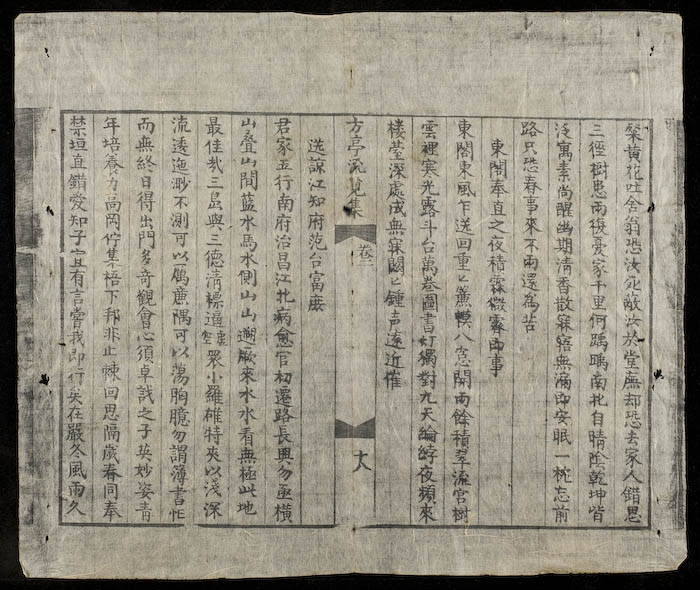 黄花吐舍翁恐汝死敵汝於堂廡却恐去家人錯思
三徑樹患兩複憂家千里何踽踽南北自晴陰乾坤皆
泛寓素尚醒幽期清香散寐寤無痾即安眠一枕忘前
路只恐春事來不雨還為苦
東閣奉直之夜積霖微霽即事
東閣東風乍送回重〻簾幙八窓開雨餘積翠流宫樹
雲裡寒光露斗台萬卷圖書灯獨對九天綸綍夜頻來
楼臺深處成無寐〻鍾声遠近催
方亭流覽集 卷二 十八
送諒江知府范台富庶
君家五行南府治昌江北病愈官初還路長興勿亟橫
山叠山間藍水馬水側山山遡厥來水水看無極此地
最佳哉三島與三德清標逼霄衆小羅雄特夾以淺深
流逶迤渺不測可以厲廉隅可以蕩胸臆勿謂簿書忙
而無終日得出門多奇觀會心須卓識之子英妙姿青
年培養力高岡佇集梧下邦非止棘回思隔歲春同奉
禁垣直錯愛知子宜有言嘗我即行矣在嚴冬風雨久